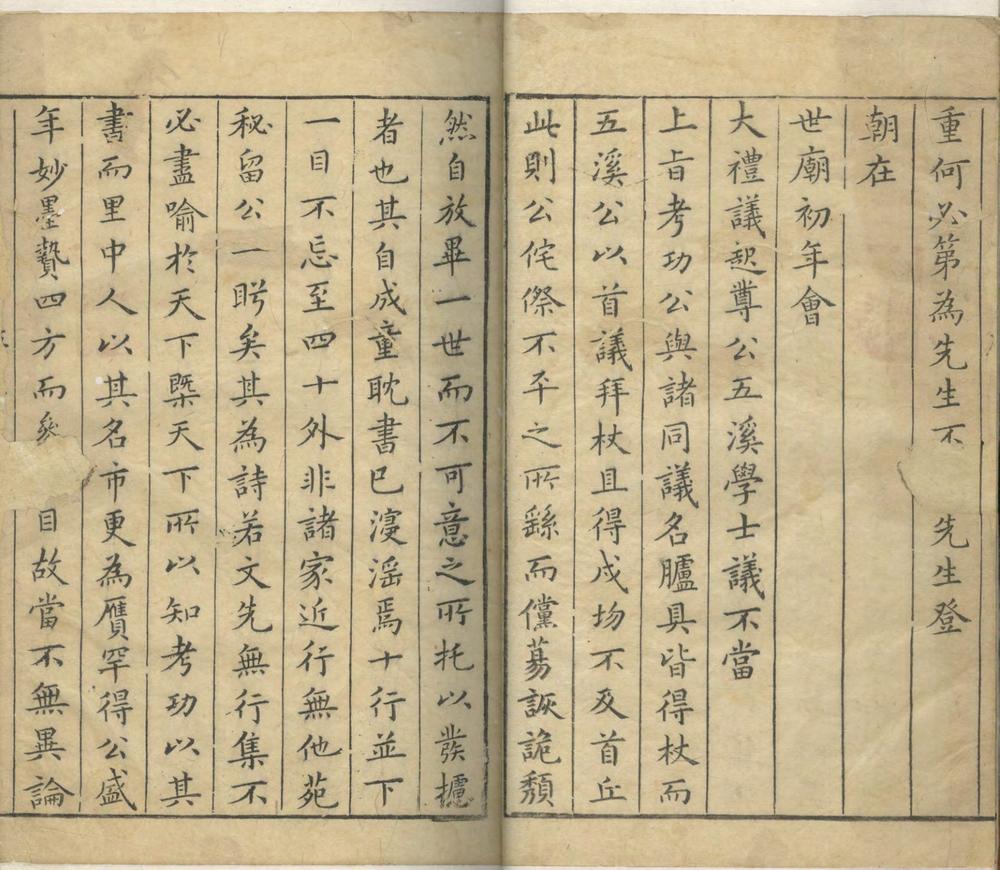 重何必第為先生不 先生登
朝在
世廟初年會
大禮議起尊公五溪學士議不當
上旨考功公與諸同議名臚具皆得杖而
五溪公以首議拜杖且得戍均不及首丘
此則公侘傺不平之所繇而儻蕩詼詭頹
然自放畢一世而不可意之所托以發攄
者也其自成童耽書已寖滛焉十行並下
一目不忘至四十外非諸家近行無他苑
秘留公一盻矣其為詩若文先無行集不
必盡喻於天下槩天下所以知考功以其
書而里中人以其名市更為贗罕得公盛
年妙墨贄四方而 目故當不無異論